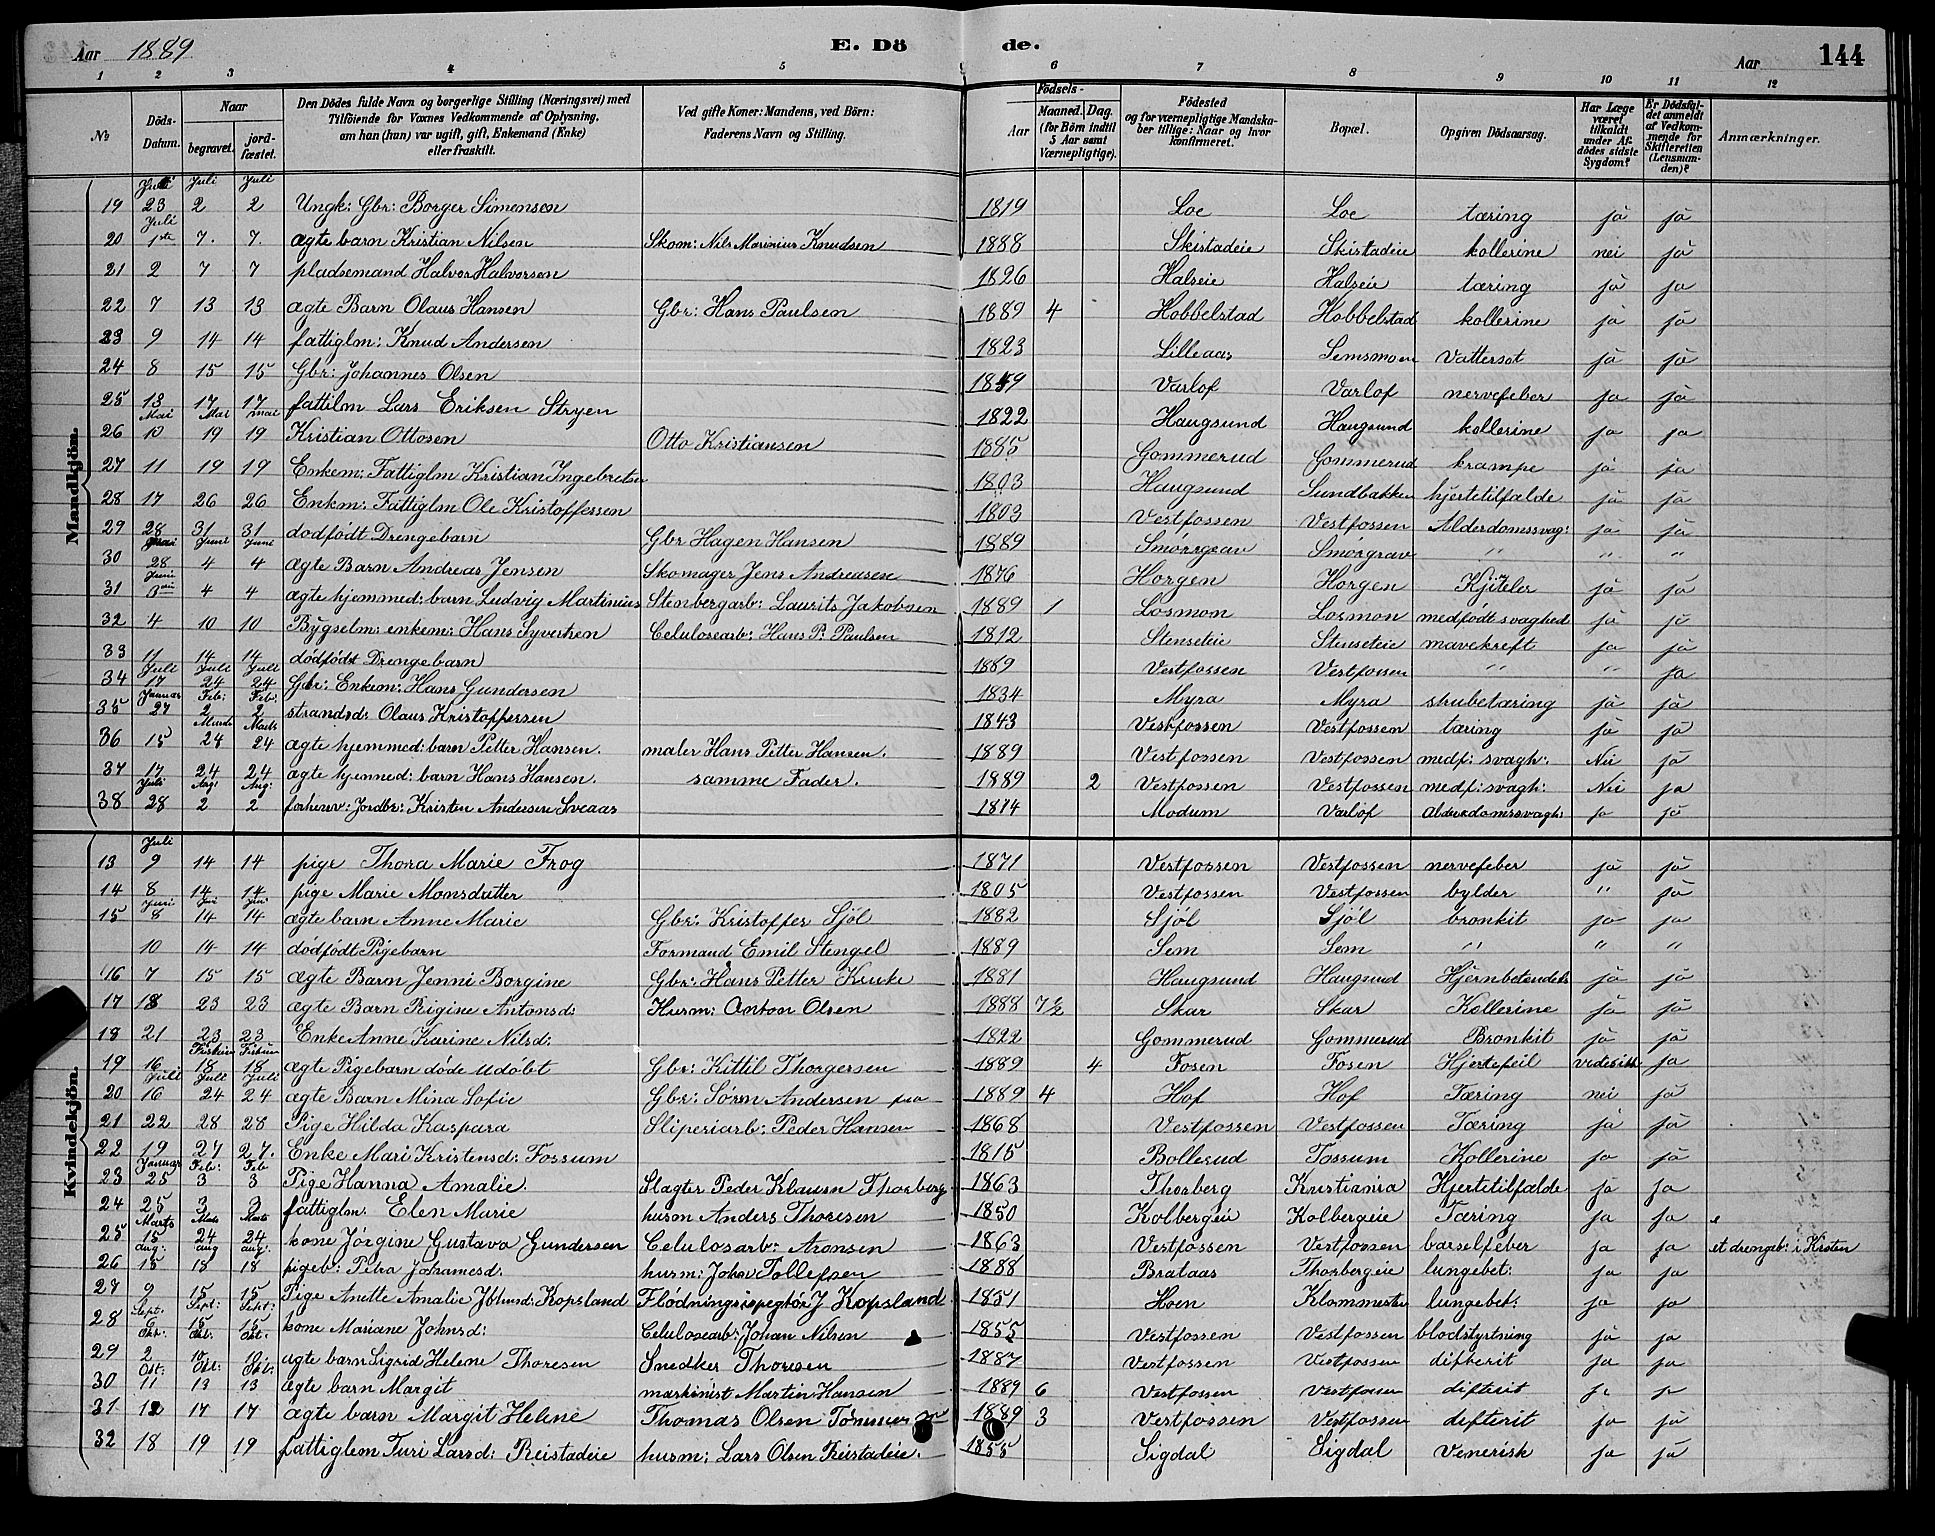 Aar 1889 E. Dö de. Aar 144
1 2 3 4 5 6 7 8 9 10 11 12
No Döds-Datum. Naar begravet. jordfæstet. Den Dödes fulde Navn og borgerlige Stilling (Næringsvei) med Tilföiende for Voxnes Vedkommende af Oplysning, om han (hun) var ugift, gift, Enkemand (Enke) eller fraskilt. Ved gifte Koner: Mandens, ved Börn: Faderens Navn og Stilling. Födsels- Aar Maaned. Dag. (for Börn indtil 5 Aar samt Værnepligtige). Födested og for værnepligtige Mandskaber tillige: Naar og hvor konfirmeret. Bopæl. Opgiven Dödsaarsag. Har Læge været tilkaldt under Afdödes sidste Sygdom? Er Dödsfaldet anmeldt af Vedkommende for Skifteretten (Lensmanden)? Anmærkninger.
Mandkjön.
Juli Juli
19 23 2 2 Ungk: Gbr: Borger Simensen 1819 Loe Loe tæring ja ja
Juli
20 1ste 7. 7. ægte barn Kristian Nilsen Skom: Nils Marinius Knudsen 1888 Skistadeie Skistadeie kollerine nei ja
21 2 7 7 pladsemand Halvor Halvorsen 1826 Halseie Halseie tæring ja ja
22 7 13 13 ægte Barn Olaus Hansen Gbr: Hans Paulsen 1889 4 Hobbelstad Hobbelstad kollerine ja ja
23 9 14 14 fattiglm: Knud Andersen 1823 Lilleaas Semsmoen Vattersot ja ja
24 8 15 15 Gbr: Johannes Olsen Varlof Varlof nervefeber ja ja
25 13 17 17 fattilm Lars Eriksen Stryen 1822 Haugsund Haugsund kollerine ja ja
Mai Mai mai
26 10 19 19 Kristian Ottosen Otto Kristiansen 1885 Gommerud Gommerud krampe ja ja
27 11 19 19 Enkem: Fattiglm Kristian Ingebretsen 1803 Haugsund Sundbakken hjertetilfælde ja ja
28 17 26 26 Enkm: Fattiglm Ole Kristoffersen 1803 Vestfossen Vestfossen Alderdomssvag: ja ja
29 28 31 31 dødfødt Drengebarn Gbr Hagen Hansen 1889 Smörgrav Smörgrav " " "
Juni Juni
30 28 4 4 ægte Barn Andreas Jensen Skomager Jens Andreasen 1876 Horgen Horgen ja ja
Juni
31 4 4 ægte hjemmed: barn Ludvig Martinius Stenbergarb: Laurits Jakobsen 1889 1 Losmon Losmon medfödt svaghed ja ja
32 4 10 10 Bygselm: enkem: Hans Syvertsen Celulosearb: Hans P. Paulsen 1812 Stenseteie Stenseteie mavekreft ja ja
33 11 14 14 dödfødt Drengebarn 1889 Vestfossen Vestfossen " " ja
Juli Juli Juli
34 17 24 24 Gbr: Enkem: Hans Gundersen 1834 Myra Myra ja ja
Januar Feb: Feb:
35 27 2 2 strands: Olaus Kristoffersen 1843 Vestfossen Vestfossen tæring ja ja
Marts Marts
36 15 24 24 ægte hjemmed: barn Petter Hansen. maler Hans Petter Hansen. 1889 Vestfossen Vestfossen medf: svagh: Nei ja
37 17 24 24 ægte hjemmed: barn Hans Hansen. samme Fader. 1889 2 Vestfossen Vestfossen medf: svagh: Nei ja
Juli Aug: Aug:
38 28 2 2 forhenv: Jordbr: Kristen Andersen Sveaas 1814 Modum Varlof Alderdomssvagh: ja ja
Kvindekjön.
Juli
13 9 14 14 pige Thora Marie Frog 1871 Vestfossen Vestfossen nervefeber ja ja
14 8 14 14 pige Marie Monsdatter 1805 Vestfossen Vestfossen bylder " ja
Juni Juni
15 8 14 14 ægte barn Anne Marie Gbr: Kristoffer Sjöl 1882 Sjöl Sjöl bronkit ja ja
10 14 14 dödfödt Pigebarn Formand Emil Stengel 1889 Sem Sem " " "
16 7 15 15 ægte Barn Jenni Borgine Gbr: Hans Petter 1881 Haugsund Haugsund Hjernbetendels ja ja
17 18 23 23 ægte Barn Rigine Antonsd: Husm: Anton Olsen 1888 7½ Skar Skar Kollerine ja ja
18 21 23 23 Enke Anne Karine Nilsd: 1822 Gommerud Gommerud Bronkit ja ja
Fiskum Fiskum
19 16 18 18 ægte Pigebarn døde Udøbt Gbr: Kittil Thorgersen 1889 4 Fosen Fosen Hjertefeil ja
Juli Juli Juli
20 16 24 24 ægte Barn Mina Sofie Gbr: Sørm Andersen 1889 4 Hof Hof Tæring nei ja
21 22 28 28 Pige Hilda Kaspara Sliperiarb: Peder Hansen 1868 Vestfossen Vestfossen Tæring ja ja
22 19 27 27. Enke Mari Kristensd: Fossum 1815 Bollerud Fossum Kollerine ja ja
Januar Feb: Feb
23 25 3 3 Pige Hanna Amalie Slagter Peder Klausen Thorberg 1863 Thorberg Kristiania Hjertetilfælde ja ja
24 25 3 3 fattiglm: Elen Marie husm Anders Thoresen 1850 Kolbergeie Kolbergeie Tæring ja ja
Marts Marts Marts
25 15 24 24 kone Jörgine Gustava Gundersen Celulosarb: Aronsen 1863 Vestfossen Vestfossen barselfeber ja ja et drengeb: i Kisten
aug: aug aug:
26 15 18 18 pigeb: Petra Johannesd: husm: Johan Tollefsen 1888 Brataas Thorbergeie lungebet: ja ja
27 9 15 15 Pige Anette Amalie Kopsland Flödningsinspegtör J Kopsland 1851 Hoen lungebet: ja ja
Sept. Sept: Sept:
28 6 15 15 kone Mariane Johnsd: Celulosearb: Johan Nilsen 1855 Vestfossen Vestfossen blodstyrtning ja ja
Okt: Okt: Okt:
29 2 10 10 ægte barn Sigrid Helene Thoresen Snedker Thoresen 1887 Vestfossen Vestfossen difterit ja ja
Okt: Okt: Okt:
30 11 13 13 ægte barn Margit maskinist Martin Hansen 1889 6 Vestfossen Vestfossen difterit ja ja
31 12 17 17 ægte barn Margit Helene Thomas Olsen 1889 3 Vestfossen Vestfossen difterit ja ja
32 18 19 19 fattiglem Turi Larsd: Reistadeie husm: Lars Olsen Reistadeie. 1855 Sigdal Sigdal Venerisk ja ja